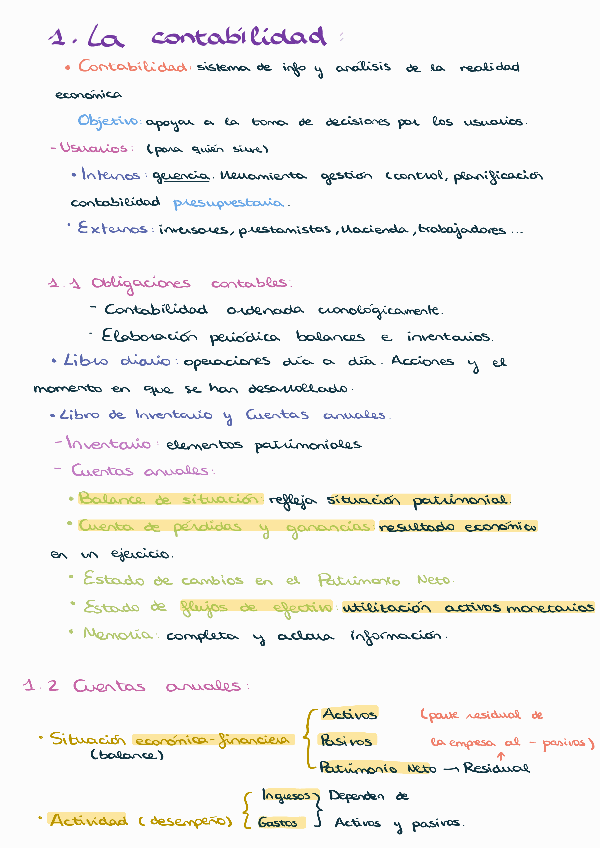 1. La contabilidad:
• Contabilidad: sistema de info y análisis de la realidad
económica
Objetivo: apoyar a la toma de decisiones por los usuarios.
- Usuarios: (para quién sirve)
• Internos: gerencia. Herramienta gestión (control, planificación
contabilidad presupuestaria.
• Externos: inversores, prestamistas, Hacienda, trabajadores...
1.1 Obligaciones contables:
- Contabilidad ordenada cronológicamente.
- Elaboración periódica balances e inventarios.
• Libro diario: operaciones día a día. Acciones y el
momento en que se han desarrollado.
• Libro de Inventario y Cuentas anuales.
- Inventario: elementos patrimoniales
- Cuentas anuales:
• Balance de situación: refleja situación patrimonial.
• Cuenta de pérdidas y ganancias: resultado económico
en un ejercicio.
• Estado de cambios en el Patrimonio Neto.
• Estado de flujos de efectivo: utilitación activos monetarios
• Memoria: completa y aclara información.
1.2 Cuentas anuales:
• Situación económica-financiera (balance) { Activos
Pasivos
Patrimonio Neto → Residual
(parte residual de
la empresa al - pasivos)
• Actividad (desempeño) { Ingresos
Gastos } Dependen de
Activos y pasivos.